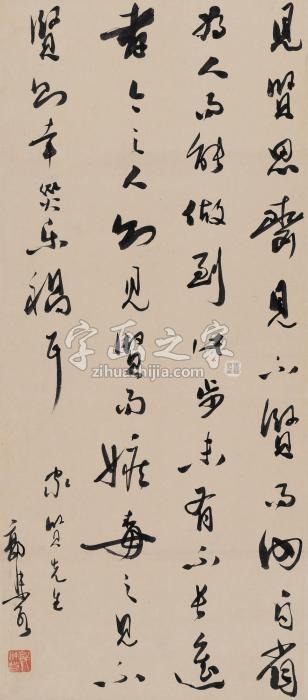 見賢思齊見不賢而內自省
為人而能做到此步未有不長進
者今之人則見賢而嫉毒之見不
賢則幸災樂禍耳
家賢先生
郭沫若
字画之家
zihuazhijia.com